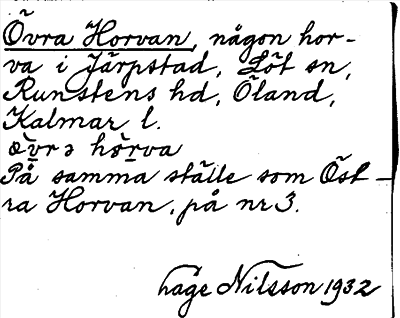 Övra Horvan, någon hor-
va i Järpstad, Löt sn,
Runstens hd, Öland,
Kalmar l.
övrə hörva
På samma ställe som Öst-
ra Horvan, på nr 3.
hage Nilsson 1932